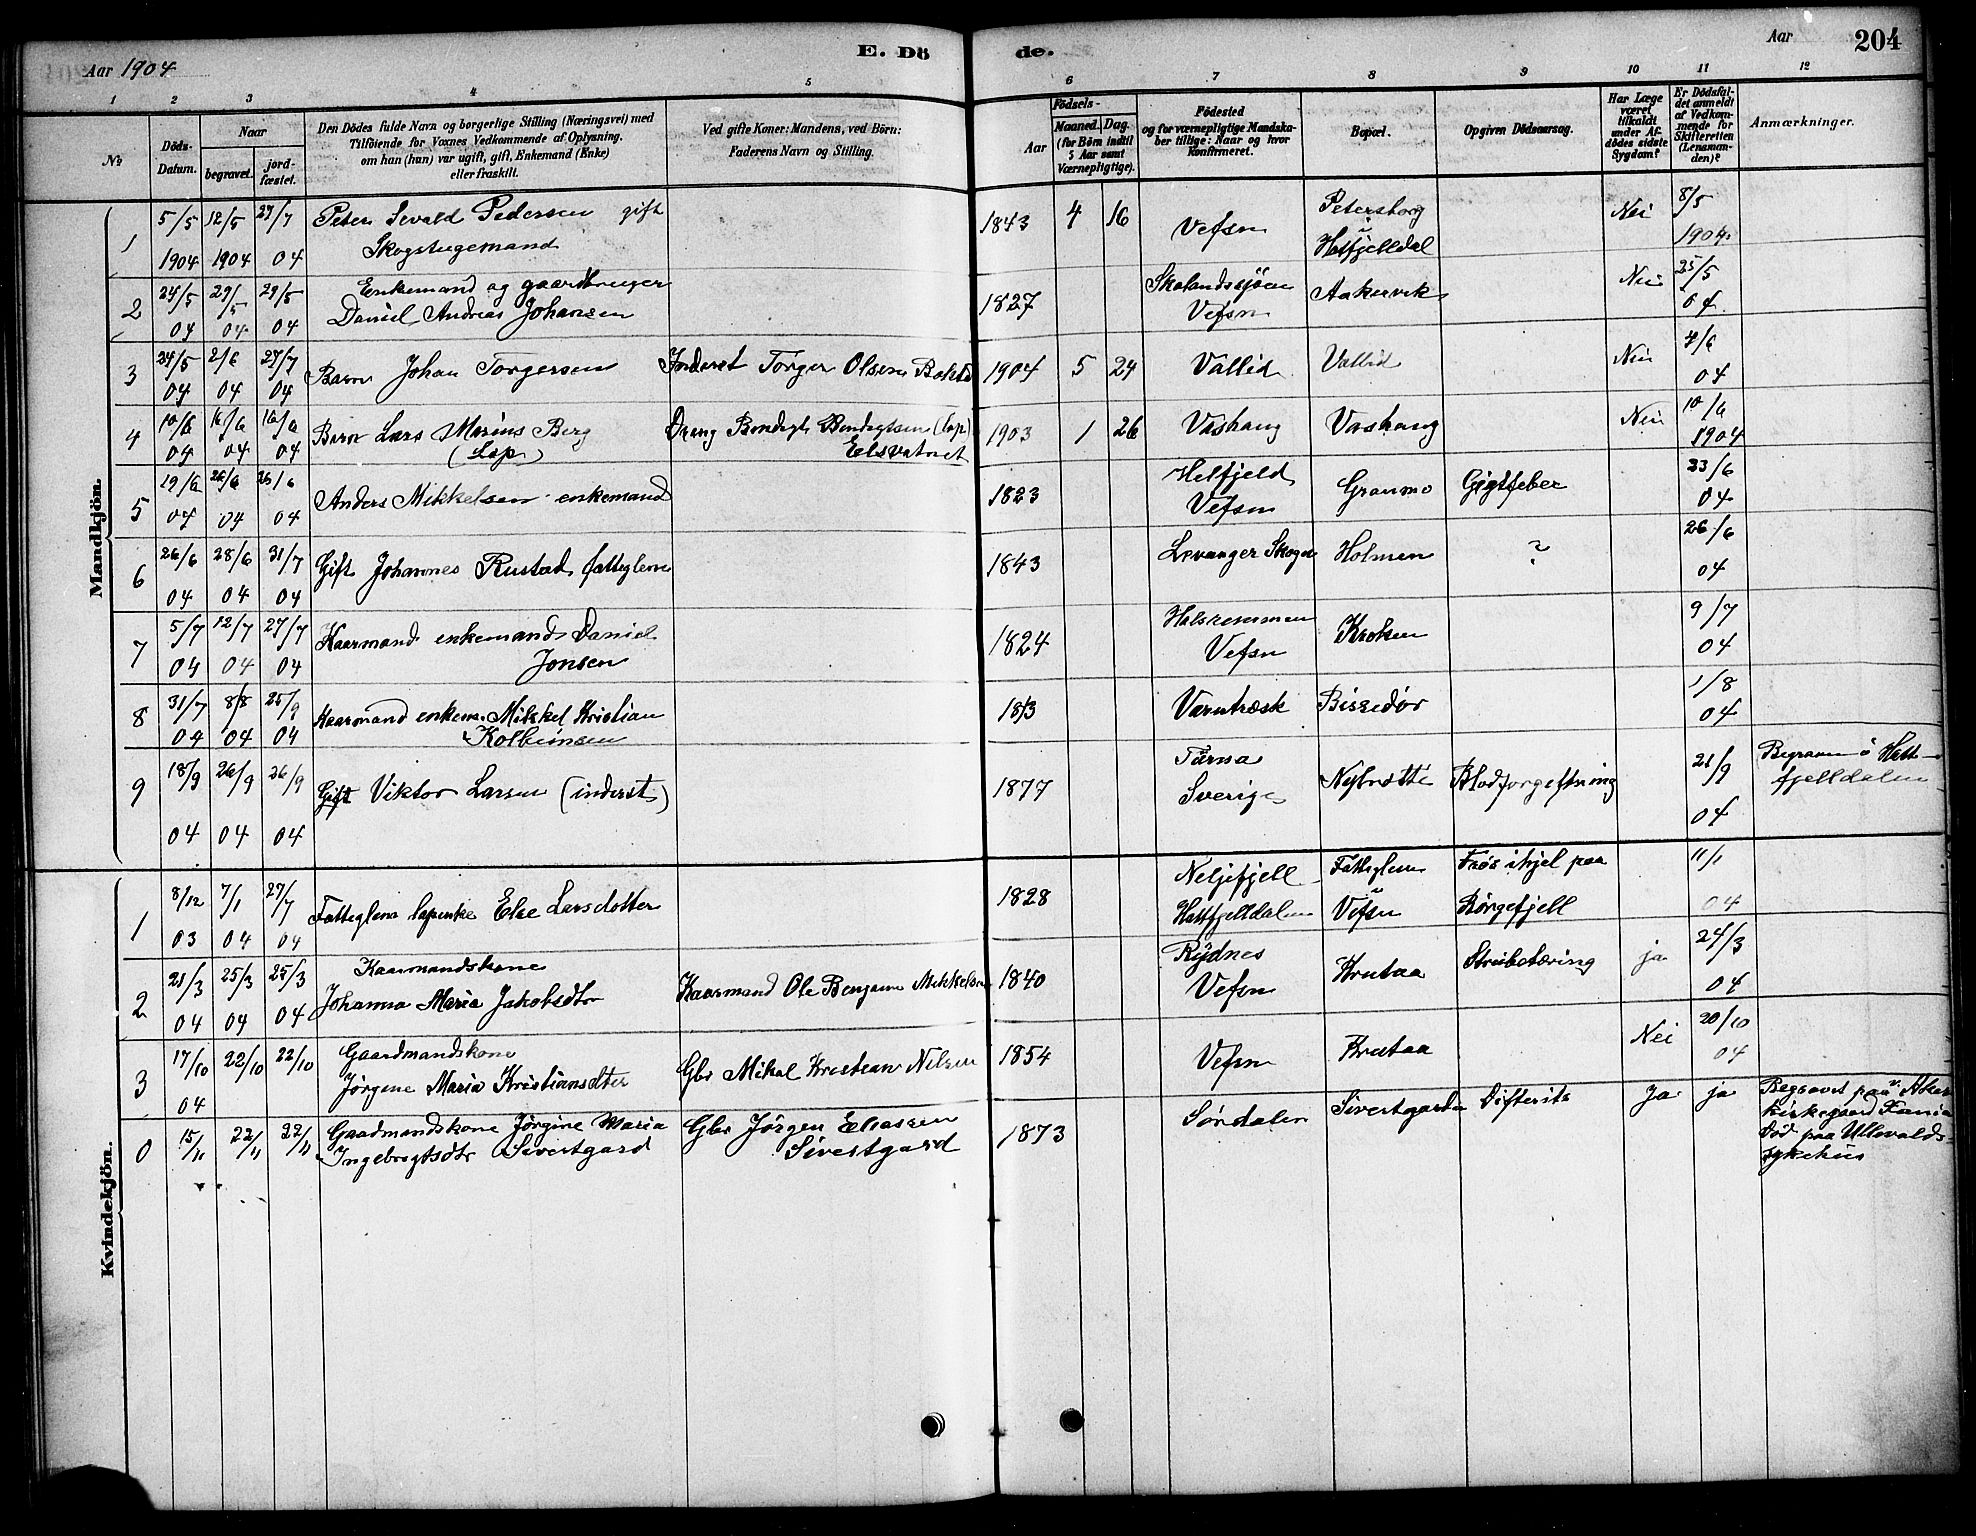 Aar 1904
E. Dö
de.
Aar
204
1 2 3 4 5 6 7 8 9 10 11 12
№
Döds-
Datum.
Naar
begravet.
jord-
fæstet.
Den Dödes fulde Navn og borgerlige Stilling (Næringsvei) med
Tilföiende for Voxnes Vedkommende af Oplysning,
om han (hun) var ugift, gift, Enkemand (Enke)
eller fraskilt.
Ved gifte Koner: Mandens, ved Börn:
Faderens Navn og Stilling.
Födsels-
Aar
Maaned.
Dag.
(for Börn indtil
5 Aar samt
Værnepligtige).
Födested
og for værnepligtige Mandska-
ber tillige: Naar og hvor
Konfirmeret.
Bopæl.
Opgiven Dödsaarsag.
Har Læge
været
tilkaldt
under Af-
dödes sidste
Sygdom?
Er Dödsfal-
det anmeldt
af Vedkom-
mende for
Skifteretten
(Lensman-
den)?
Anmærkninger.
Mandkjön.
1 5/5 1904 12/5 1904 27/7 04 Peter Sevald Pedersen gift
1843 4 16 Vefsn Petersborg Nei 8/5 1904
Hatfjelldal
2 24/5 04 29/5 04 29/5 04 Enkemand og gaardbruger
Daniel Andreas Johansen 1827 Vefsn Aakervik Nei 25/5 04
3 24/5 04 2/6 04 27/7 04 Barn Johan Torgersen Inderst Torger Olsen 1904 5 24 Vallid Vallid Nei 4/6 04
4 10/6 04 16/6 04 16/6 04 Barn Lars Marius Berg
(Lap) Elsvatnet
1903 1 26 Nei 10/6 1904
5 19/6 04 26/6 04 26/6 04 Anders Mikkelsen enkemand 1823 Helfjeld
Vefsn Granmo Gigtfeber 23/6 04
6 26/6 04 28/6 04 31/7 04 Gift Johannes Rustad fatteglem 1843 Levanger Skogn Holmen ? 26/6 04
7 5/7 04 12/7 04 27/7 04 Kaarmand enkemand Daniel
Jonsen 1824 Vefsn Kroken 9/7 04
8 31/7 04 8/8 04 25/9 04 Kaarmand enkem. Mikkel Kristian
Varntræsk 1/8 04
9 18/9 04 26/9 04 26/9 04 Gift Viktor Larsen (inderst) 1877 Tärna
Sverige Blodforgiftning 21/9 04 Begraven i Hatt-
fjelldalen
Kvindekjön.
1 8/12 03 7/1 04 27/7 04 Fatteglem lapenke Else Larsdotter 1828
Hatfjelldalen Fatteglem
i
Vefsn Frøs ihjel paa
Börgefjell 11/1 04
2 21/3 04 25/3 04 25/3 04 Kaarmandskone
Johanna Maria Jakobsdtr Kaarmand Ole Benjamin Mikkelsen 1840 Rydnes
Vefsn Krutaa ja 24/3 04
3 17/10 04 22/10 22/10 Gaardmandskone
Jörgine Maria Kristiansdtter Gbr Mikal Kristian Nilsen 1854 Vefsn Krutaa Nei 20/10 04
0 15/11 22/11 22/11 Gaadmandskone Jørgine Maria Gbr Jørgen Eliassen 1873 Sørdalen Sivertgarden Difterit Ja ja
Ingebrigtsdtr Sivertgard Sivertgard
Begravet paa v. Aker
kirkegaard
Død paa Ullevaals
sykehus